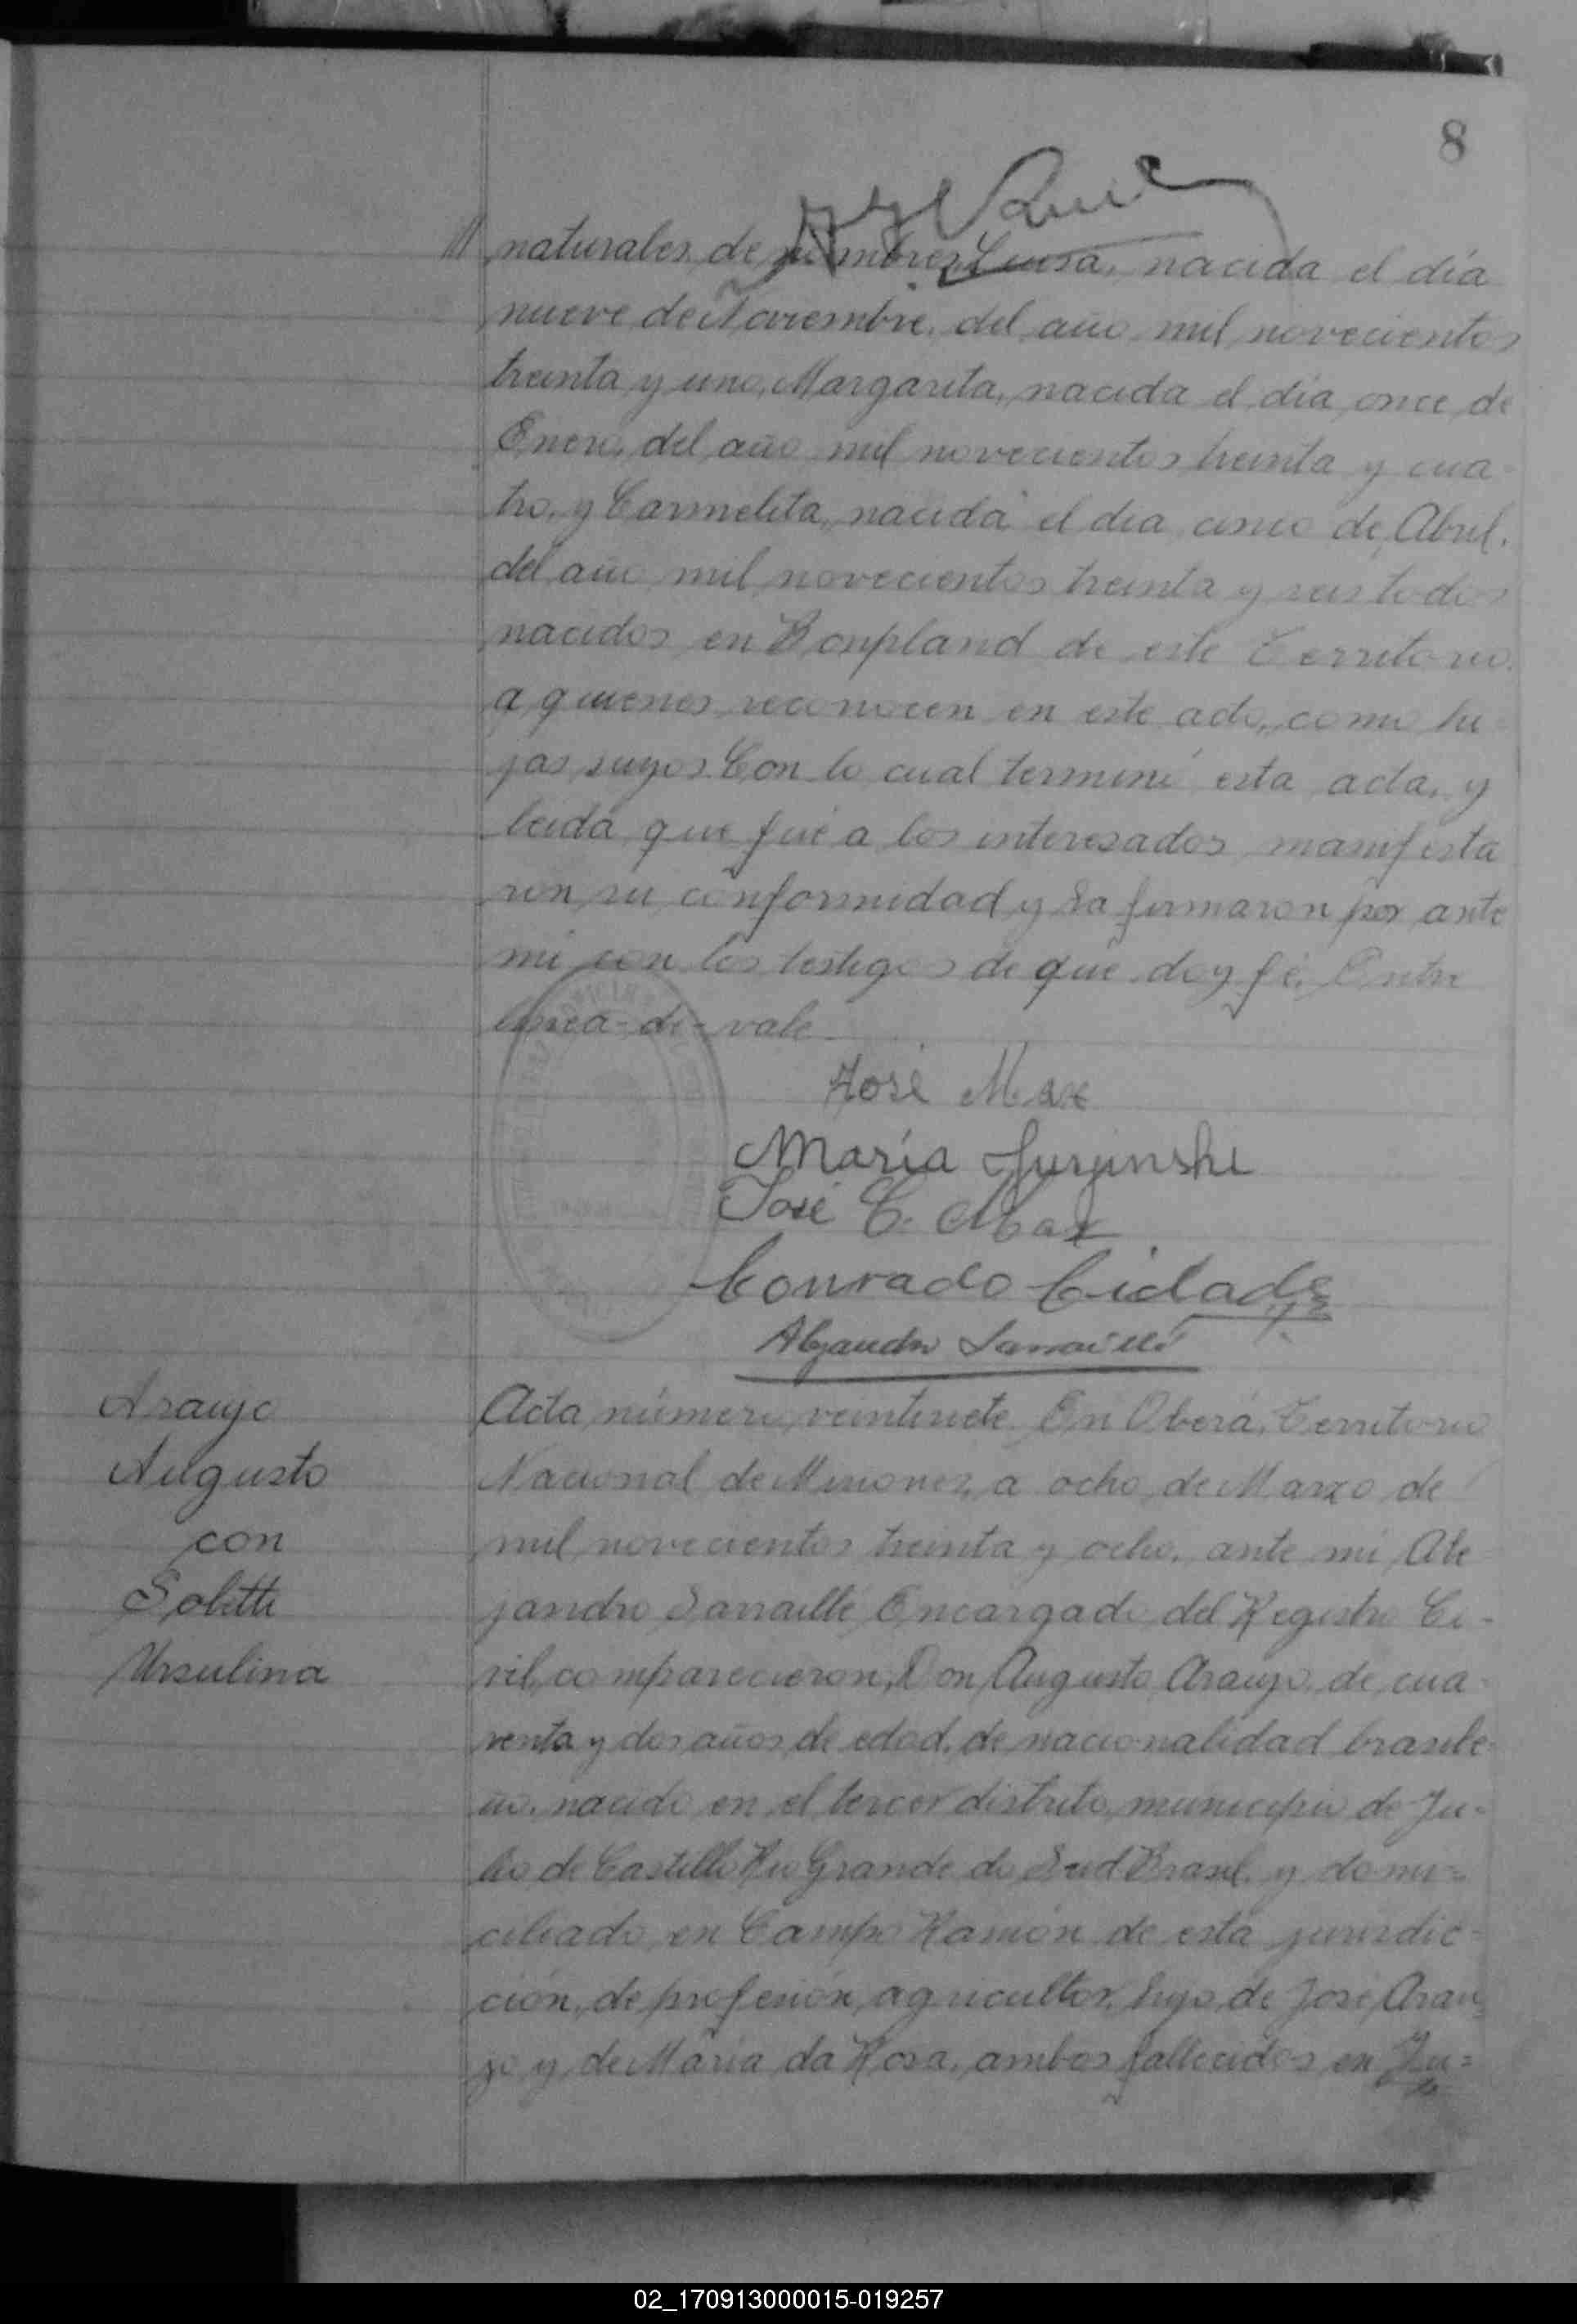 8
/// naturales de nombres Luisa, nacida el día
nueve de Noviembre, del año mil novecientos
treinta y uno, Margarita, nacida el día once de
Enero, del año mil novecientos treinta y cua-
tro, y Carmelita, nacida el día cinco de Abril,
del año mil novecientos treinta y seis todos
nacidos en Bonpland de este Territorio,
a quienes reconocen en este acto, como hi-
jas suyos. Con lo cual terminé esta acta, y
leída que fué a los interesados, manifesta
ron su conformidad y la firmaron por ante
mi con los testigos de que doy fé. Entre
línea - de - vale
José Max
María
José C. Max
Conrado Cidade
Alejandro Sarraillé
Araujo
Augusto
con
Soletti
Ursulina
Acta número veintisiete. En Oberá, Territorio
Nacional de Misiones, a ocho de Marzo de
mil novecientos treinta y ocho, ante mi Ale-
jandro Sarraillé Encargado del Registro Ci-
vil, comparecieron, Don Augusto Araujo, de cua-
renta y dos años de edad, de nacionalidad brasile-
ño, nacido en el tercer distrito, municipio de Ju-
lio de Castillo Rio Grande do Sud Brasil, y domi-
ciliado en Campo Ramón de esta jurisdic-
ción, de profesión agricultor, hijo de José Arau
jo y de María da Rosa, ambos fallecidos en Ju-
02_170913000015-019257